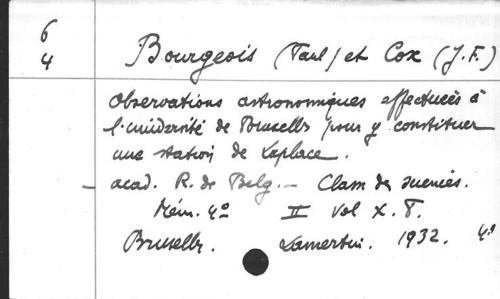 6
4
Bourgeois (Paul) et Cox (J.F.)
Observations astronomiques effectuées à
l'université de Bruxelles pour y constituer
une station de Laplace.
– Acad. R. de Belg. – Classe des sciences.
Mém. 4º II vol X. 8.
Bruxelles. Lamertin. 1932. 4º